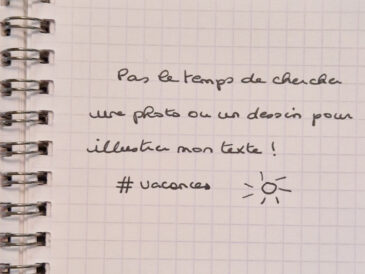 Pas le temps de chercher
une photo ou un dessin pour
illustrer mon texte !
# vacances